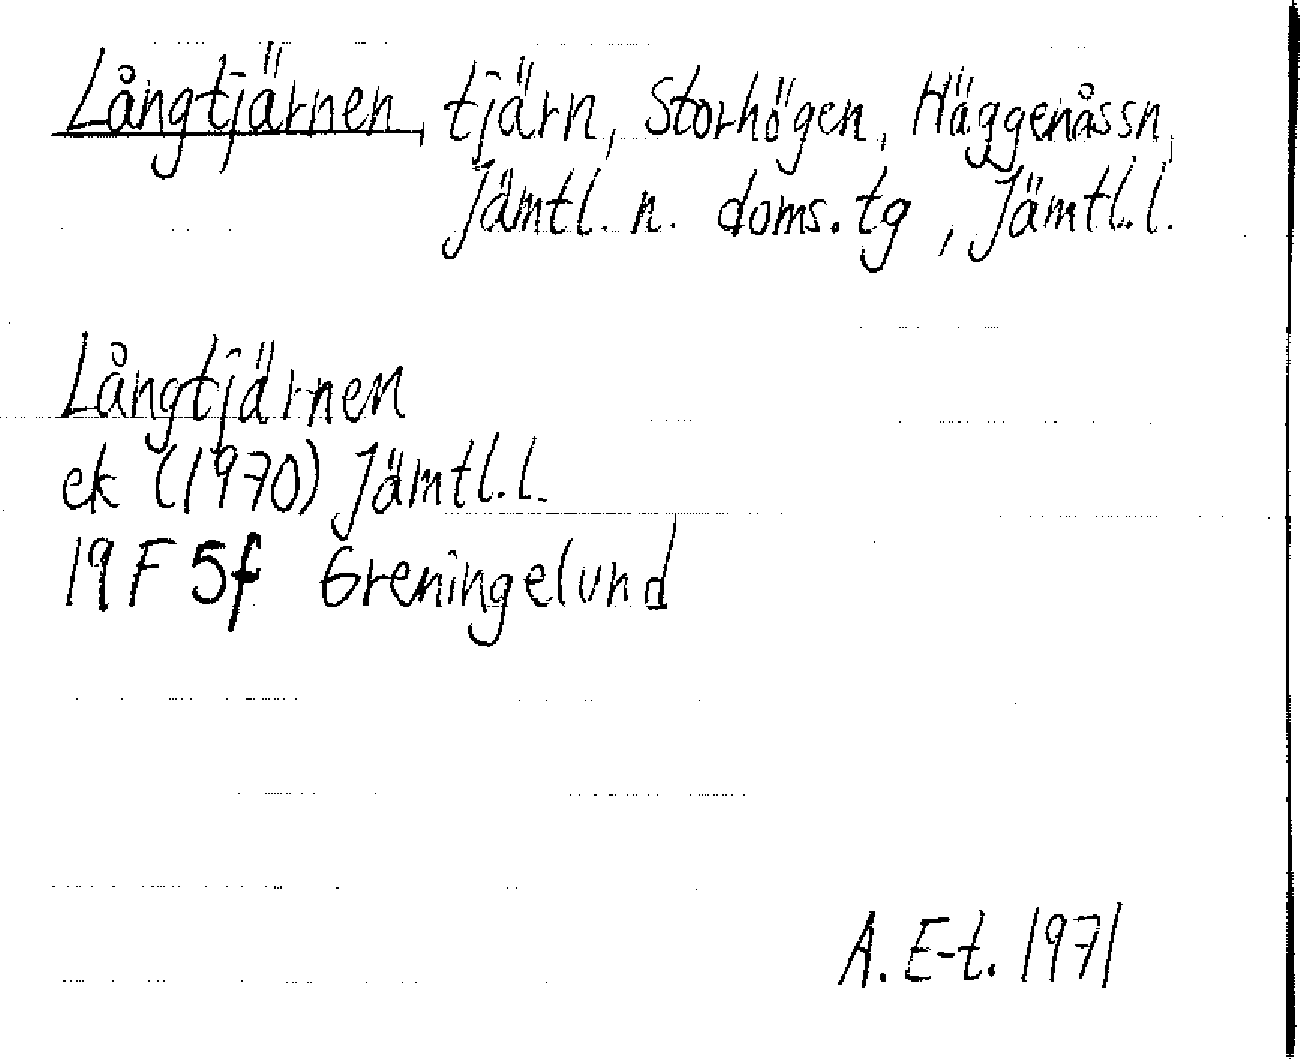 Långtjärnen, tjärn, Storhögen, Häggenåssn,
Jämtl. n. doms. tg, Jämtl. l.
Långtjärnen
ek (1970) Jämtl. l.
19 F 5f Greningelund
A. E-t. 1971